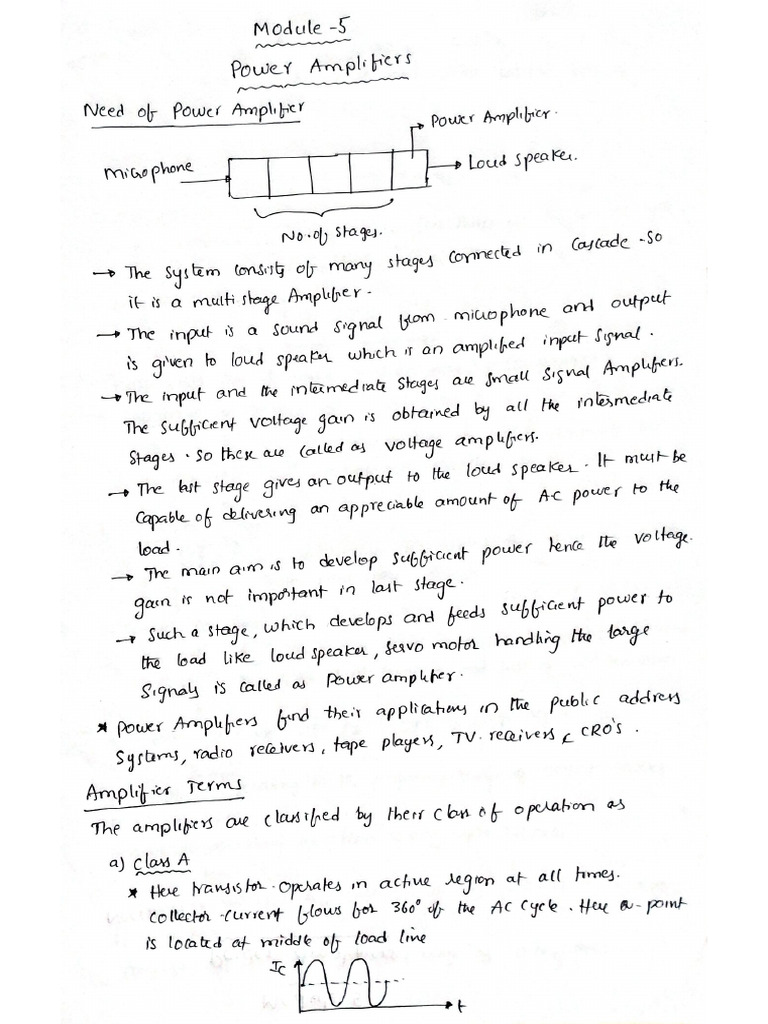 Module -5
Power Amplifiers
Need of Power Amplifier
Power Amplifier.
Microphone
Loud speaker.
No. of stages.
→ The system consists of many stages connected in cascade. So
it is a multi stage Amplifier.
→ The input is a sound signal from microphone and output
is given to loud speaker which is an amplified input signal.
→ The input and the intermediate stages are small signal Amplifiers.
The sufficient voltage gain is obtained by all the intermediate
stages. So these are called as voltage amplifiers.
→ The last stage gives an output to the loud speaker. It must be
capable of delivering an appreciable amount of AC power to the
load.
→ The main aim is to develop sufficient power hence the voltage
gain is not important in last stage.
→ Such a stage, which develops and feeds sufficient power to
the load like loud speaker, servo motor handling the large
signals is called as Power amplifier.
* Power Amplifiers find their applications in the public address
systems, radio receivers, tape players, TV receivers & CRO's.
Amplifier Terms
The amplifiers are classified by their class of operation as
a) Class A
* Here transistor operates in active region at all times.
collector current flows for 360° of the AC cycle. Here Q-point
is located at middle of load line
Ic
t